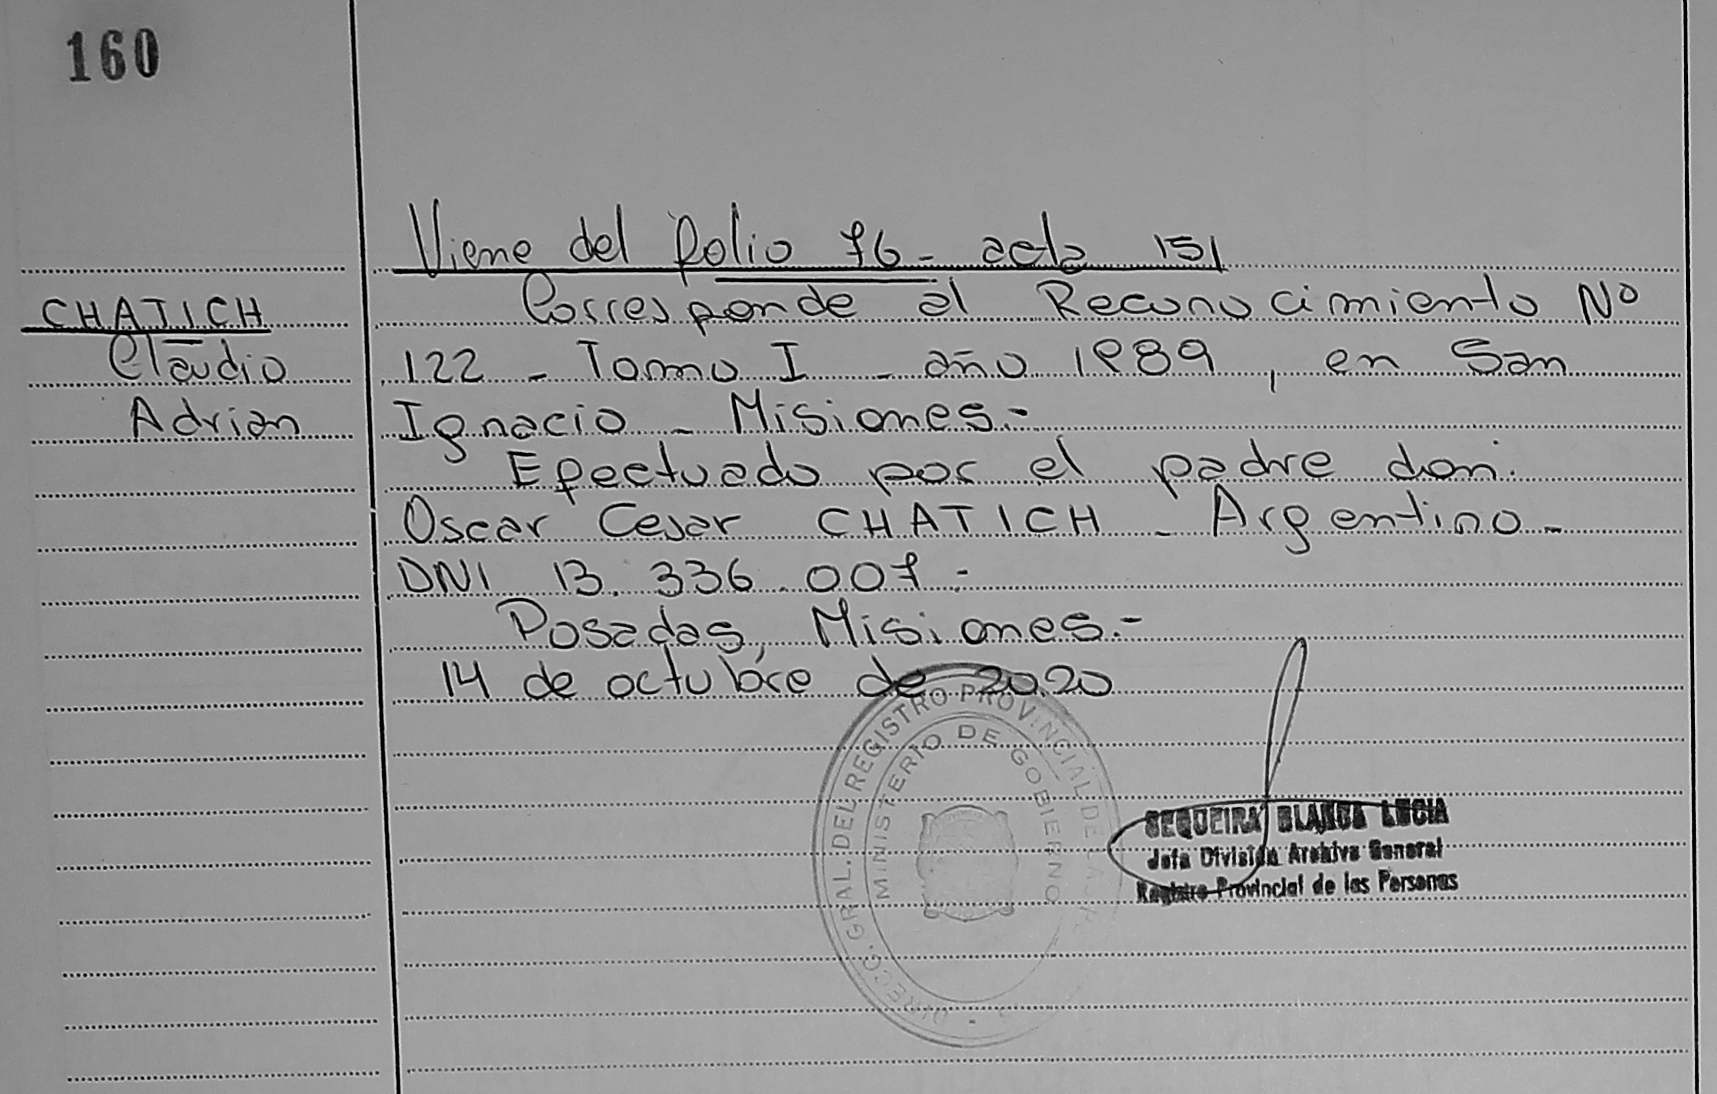 160
Viene del folio 76 - acta 151
CHATICH
Claudio
Adrian
Corresponde al Reconocimiento Nº
122 - Tomo I - año 1989, en San
Ignacio - Misiones.-
Efectuado por el padre don:
Oscar Cesar CHATICH - Argentino -
DNI 13.336.007.-
Posadas, Misiones.-
14 de octubre de 2020
DIREC. GRAL. DEL REGISTRO PROVINCIAL DE LAS
MINISTERIO DE GOBIERNO
SEQUEIRA BLANCA LUCIA
Jefa División Archivo General
Registro Provincial de las Personas